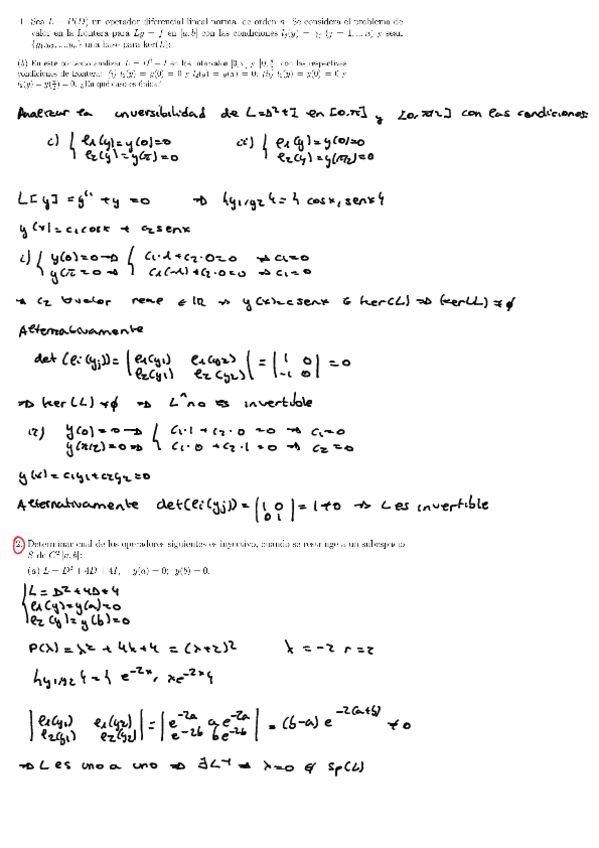 1. Sea L = P(D) un operador diferencial lineal normal de orden n. Se considera el problema de
valor en la frontera para Ly = f en [a, b] con las condiciones l_j(y) = γ_j (j = 1, ..., n) y sean
{y_1, y_2, ..., y_n} una base para ker(L):
(b) En este contexto analizar L = D² + I en los intervalos [0, π] y [0, π/2] con las respectivas
condiciones de frontera: (i) l_1(y) = y(0) = 0 y l_2(y) = y(π) = 0; (ii) l_1(y) = y(0) = 0 y
l_2(y) = y(π/2) = 0. ¿En qué caso es única?
Analizar la inversibilidad de L=D²+I en [0,π] y [0,π/2] con las condiciones:
i) { l1(y)=y(0)=0 ii) { l1(y)=y(0)=0
l2(y)=y(π)=0 l2(y)=y(π/2)=0
L[y] = y'' + y = 0 ⇒ {y1,y2} = {cosx, senx}
y(x)=c1cosx + c2senx
i) { y(0)=0 → { c1·1+c2·0=0 → c1=0
y(π)=0 → c1(-1)+c2·0=0 → c1=0
→ c2 valor real ∈ IR → y(x)=csenx ∈ ker(L) ⇒ ker(L) ≠ ∅
Alternativamente
det(li(yj)) = | l1(y1) l1(y2) | = | 1 0 | = 0
l2(y1) l2(y2) -1 0
⇒ ker(L) ≠ ∅ ⇒ L no es invertible
ii) y(0)=0 → { c1·1+c2·0 = 0 → c1=0
y(π/2)=0 → c1·0+c2·1=0 → c2=0
y(x)=c1y1+c2y2=0
Alternativamente det(li(yj)) = | 1 0 | = 1≠0 → L es invertible
0 1
2. Determinar cual de los operadores siguientes es inyectivo, cuando se restringe a un subespacio
S de C² [a, b]:
(a) L = D² + 4D + 4I, y(a) = 0; y(b) = 0.
{ L = D²+4D+4
l1(y)=y(a)=0
l2(y)=y(b)=0
P(λ) = λ² + 4λ+4 = (λ+2)² λ = -2 r=2
{y1,y2} = { e^-2x, xe^-2x }
| l1(y1) l1(y2) | = | e^-2a ae^-2a | = (b-a) e^-2(a+b) ≠ 0
l2(y1) l2(y2) e^-2b be^-2b
⇒ L es uno a uno ⇒ ∃L⁻¹ ⇒ λ=0 ∉ Sp(L)